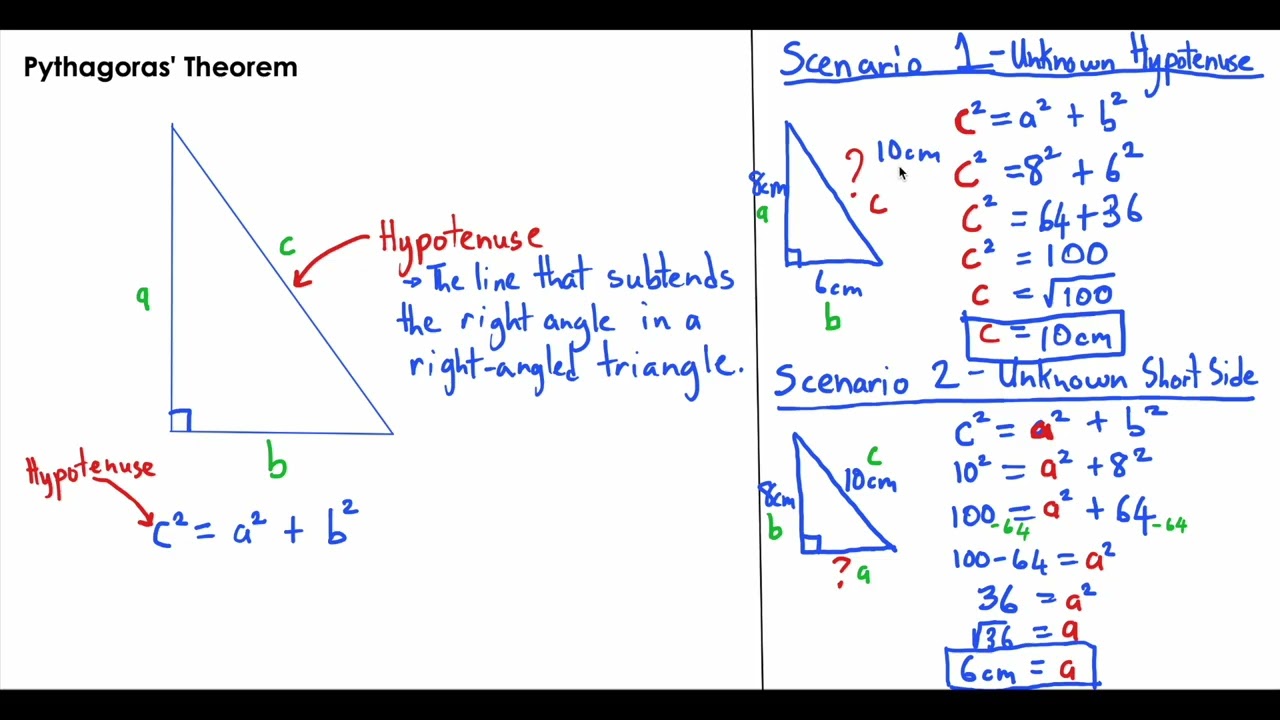 Pythagoras' Theorem
a
c
b
Hypotenuse
→ The line that subtends
the right angle in a
right-angled triangle.
Hypotenuse
c² = a² + b²
Scenario 1 - Unknown Hypotenuse
8cm
a
? 10cm
c
6cm
b
c² = a² + b²
c² = 8² + 6²
c² = 64 + 36
c² = 100
c = √100
c = 10cm
Scenario 2 - Unknown Short Side
8cm
b
c
10cm
? a
c² = a² + b²
10² = a² + 8²
100 = a² + 64
-64 -64
100 - 64 = a²
36 = a²
√36 = a
6cm = a